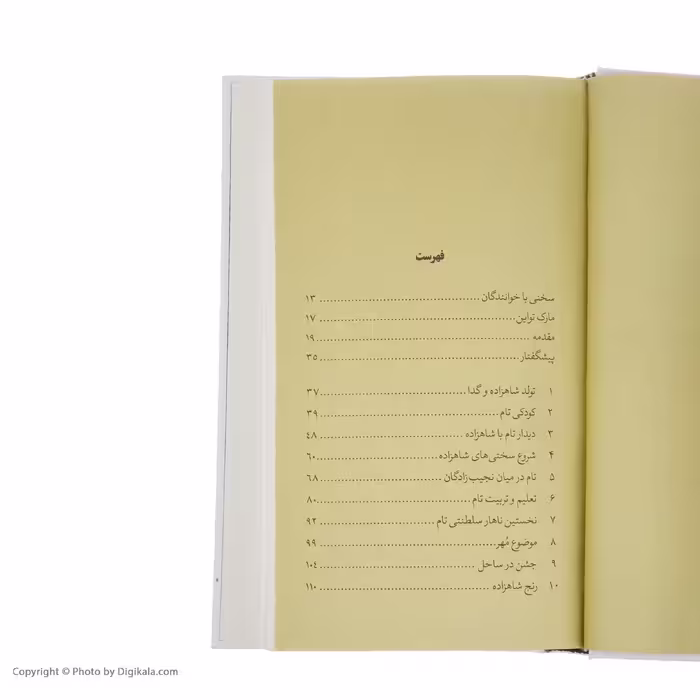 فهرست
سخنی با خوانندگان ........ ۱۳
مارک تواین ........ ۱۷
مقدمه ........ ۱۹
پیشگفتار ........ ۳۵
۱ تولد شاهزاده و گدا ........ ۳۷
۲ کودکی تام ........ ۳۹
۳ دیدار تام با شاهزاده ........ ۴۸
۴ شروع سختی‌های شاهزاده ........ ۶۰
۵ تام در میان نجیب‌زادگان ........ ۶۸
۶ تعلیم و تربیت تام ........ ۸۰
۷ نخستین ناهار سلطنتی تام ........ ۹۲
۸ موضوع مُهر ........ ۹۹
۹ جشن در ساحل ........ ۱۰۴
۱۰ رنج شاهزاده ........ ۱۱۰
Copyright © Photo by Digikala.com